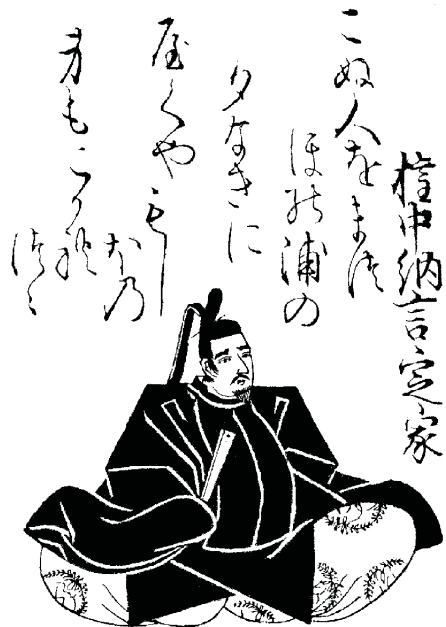 権中納言定家
こぬ人をまつ
ほの浦の
夕なきに
屋くやもし
ほ乃
身もこかれ
つゝ